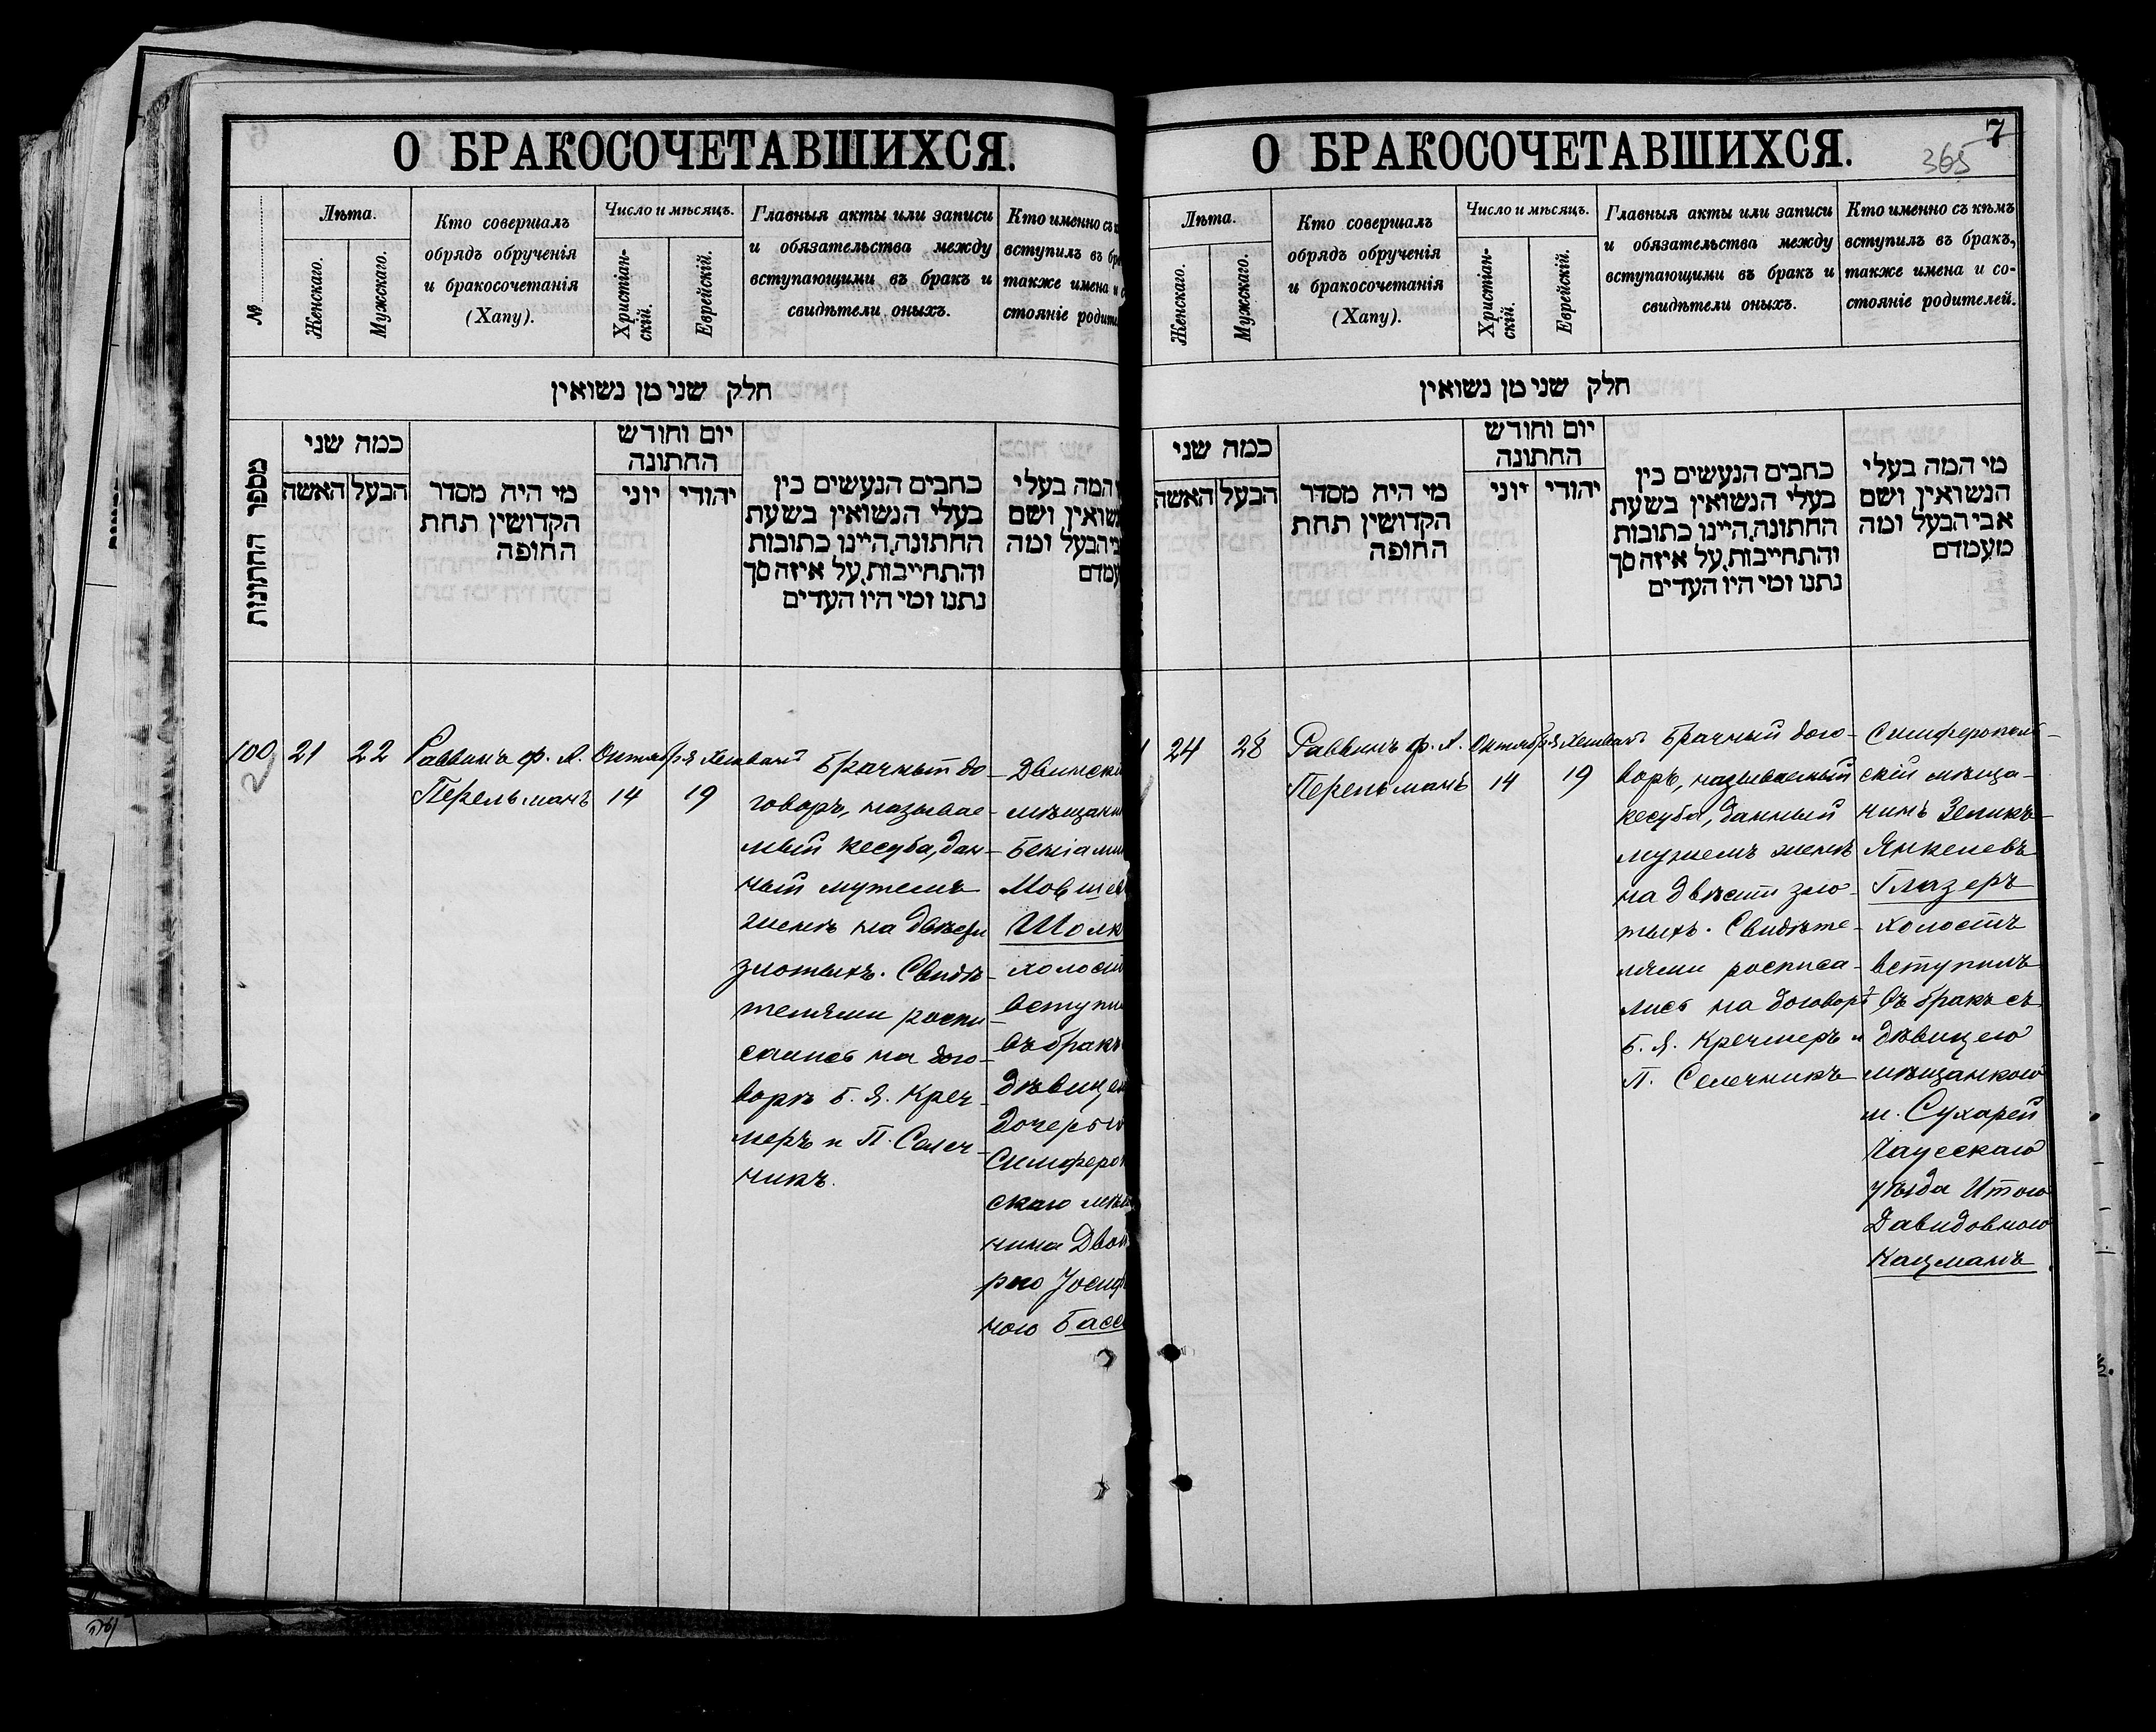 О БРАКОСОЧЕТАВШИХСЯ.
№
Лѣта.
Женскаго.
Мужскаго.
Кто совершалъ
обрядъ обрученія
и бракосочетанія
(Хапу).
Число и мѣсяцъ.
Христіан-
скій.
Еврейскій.
Главныя акты или записи
и обязательства между
вступающими въ бракъ и
свидѣтели оныхъ.
Кто именно съ
вступилъ въ
также имена
стояніе
חלק שני מן נשואין
מספר החתונות
כמה שני
האשה
הבעל
מי היה מסדר
הקדושין תחת
החופה
יום וחודש
החתונה
יוני
יהודי
כתבים הנעשים בין
בעלי הנשואין בשעת
החתונה, היינו כתובות
והתחייבות, על איזה סך
נתנו ומי היו העדים
המה בעלי
ושם
הבעל ומה
100
21
22
Раввинъ ф. А.
Перельманъ
Октября
14
Хешванъ
19
Брачный до-
говоръ, называе-
мый кесуба, дан-
ный мужемъ
женѣ на двѣсти
злотыхъ. Свидѣ-
телями распи-
сались на дого-
ворѣ Б. Я. Креч-
меръ и П. Селеч-
никъ.
въ бракъ
скаго
нина
рою
ною
О БРАКОСОЧЕТАВШИХСЯ.
7
365
Лѣта.
Женскаго.
Мужскаго.
Кто совершалъ
обрядъ обрученія
и бракосочетанія
(Хапу).
Число и мѣсяцъ.
Христіан-
скій.
Еврейскій.
Главныя акты или записи
и обязательства между
вступающими въ бракъ и
свидѣтели оныхъ.
Кто именно съ кѣмъ
вступилъ въ бракъ,
также имена и со-
стояніе родителей.
חלק שני מן נשואין
כמה שני
האשה
הבעל
מי היה מסדר
הקדושין תחת
החופה
יום וחודש
החתונה
יוני
יהודי
כתבים הנעשים בין
בעלי הנשואין בשעת
החתונה, היינו כתובות
והתחייבות, על איזה סך
נתנו ומי היו העדים
מי המה בעלי
הנשואין ושם
אבי הבעל ומה
מעמדם
24
28
Раввинъ ф. А.
Перельманъ
Октября
14
Хешванъ
19
Брачный дого-
воръ, называемый
кесуба, данный
мужемъ женѣ
на двѣсти зло-
тыхъ. Свидѣте-
лями росписа-
лись на договорѣ
Б. Я. Кречмеръ и
П. Селечникъ
Симферополь-
скій мѣща-
нинъ Зеликъ
Янкелевъ
Глазеръ
холостъ
вступилъ
въ бракъ съ
дѣвицею
мѣщанкою
м. Сухарей
Чаусскаго
уѣзда Итою
Давидовною
Кацманъ